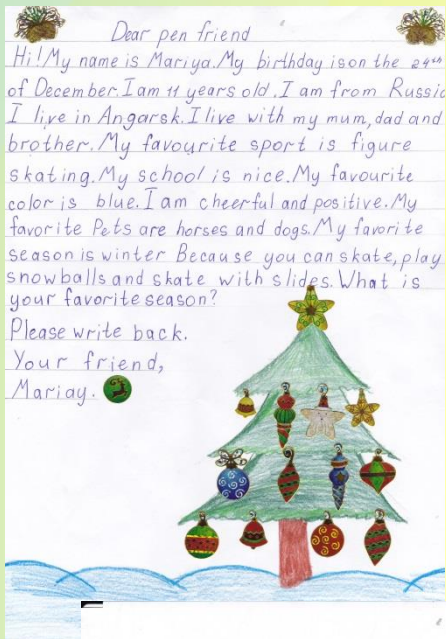 Dear pen friend
Hi! My name is Mariya. My birthday is on the 24th
of December. I am 11 years old. I am from Russia
I live in Angarsk. I live with my mum, dad and
brother. My favourite sport is figure
skating. My school is nice. My favourite
color is blue. I am cheerful and positive. My
favorite Pets are horses and dogs. My favorite
season is winter Because you can skate, play
snowballs and skate with slides. What is
your favorite season?
Please write back.
Your friend,
Mariay.